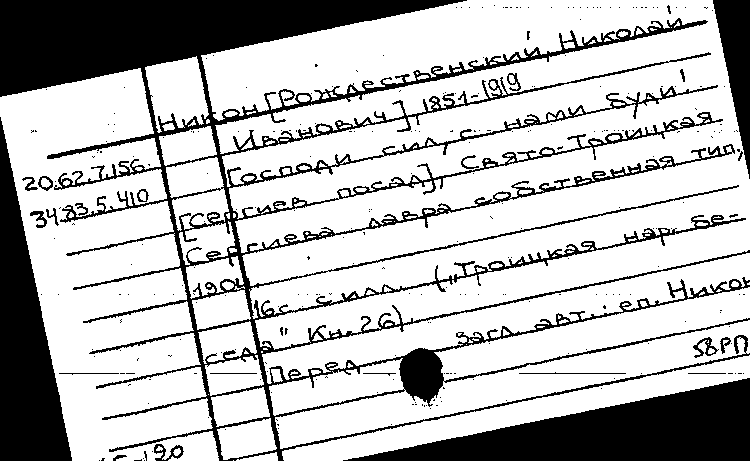 Никон [Рождественский, Николай
Иванович], 1851-1919
20.62.7.156
Господи сил, с нами буди!
34.83.5.410
[Сергиев посад], Свято-Троицкая
Сергиева лавра собственная тип,
1904.
16 с. с илл. („Троицкая нар. бе-
седа" Кн. 26).
Перед загл. авт.: еп. Никон
58РП